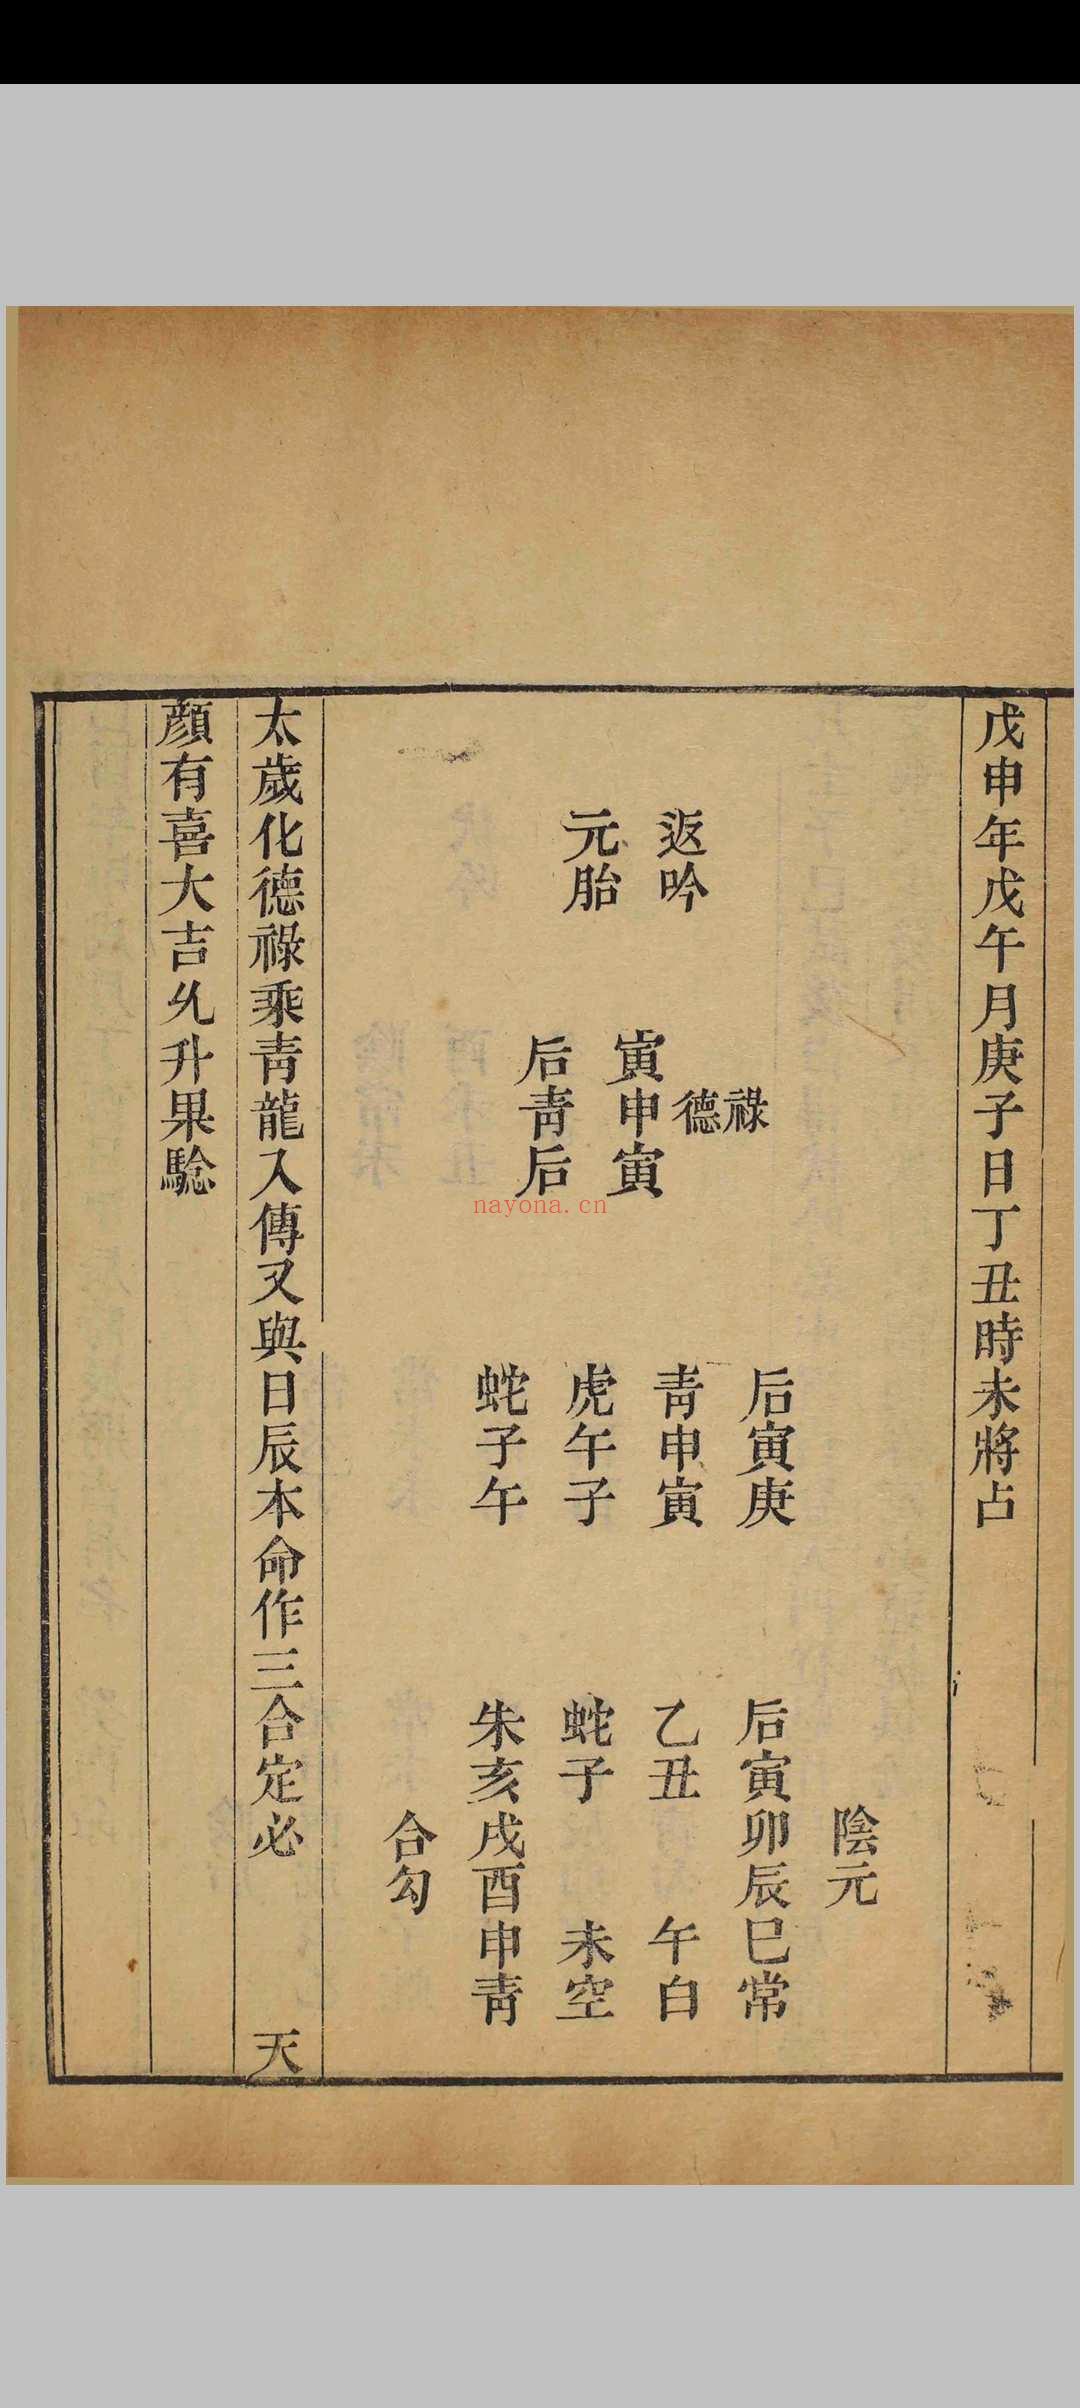 戊申年戊午月庚子日丁丑時未將占
返吟
元胎
祿
德
寅申寅
后青后
后寅庚
青申寅
虎午子
蛇子午
陰元
后寅卯辰巳常
乙丑 午白
蛇子 未空
朱亥戌酉申青
合勾
太歲化德祿乘青龍入傳又與日辰本命作三合定必 天
顏有喜大吉乆升果騐
nayona.cn